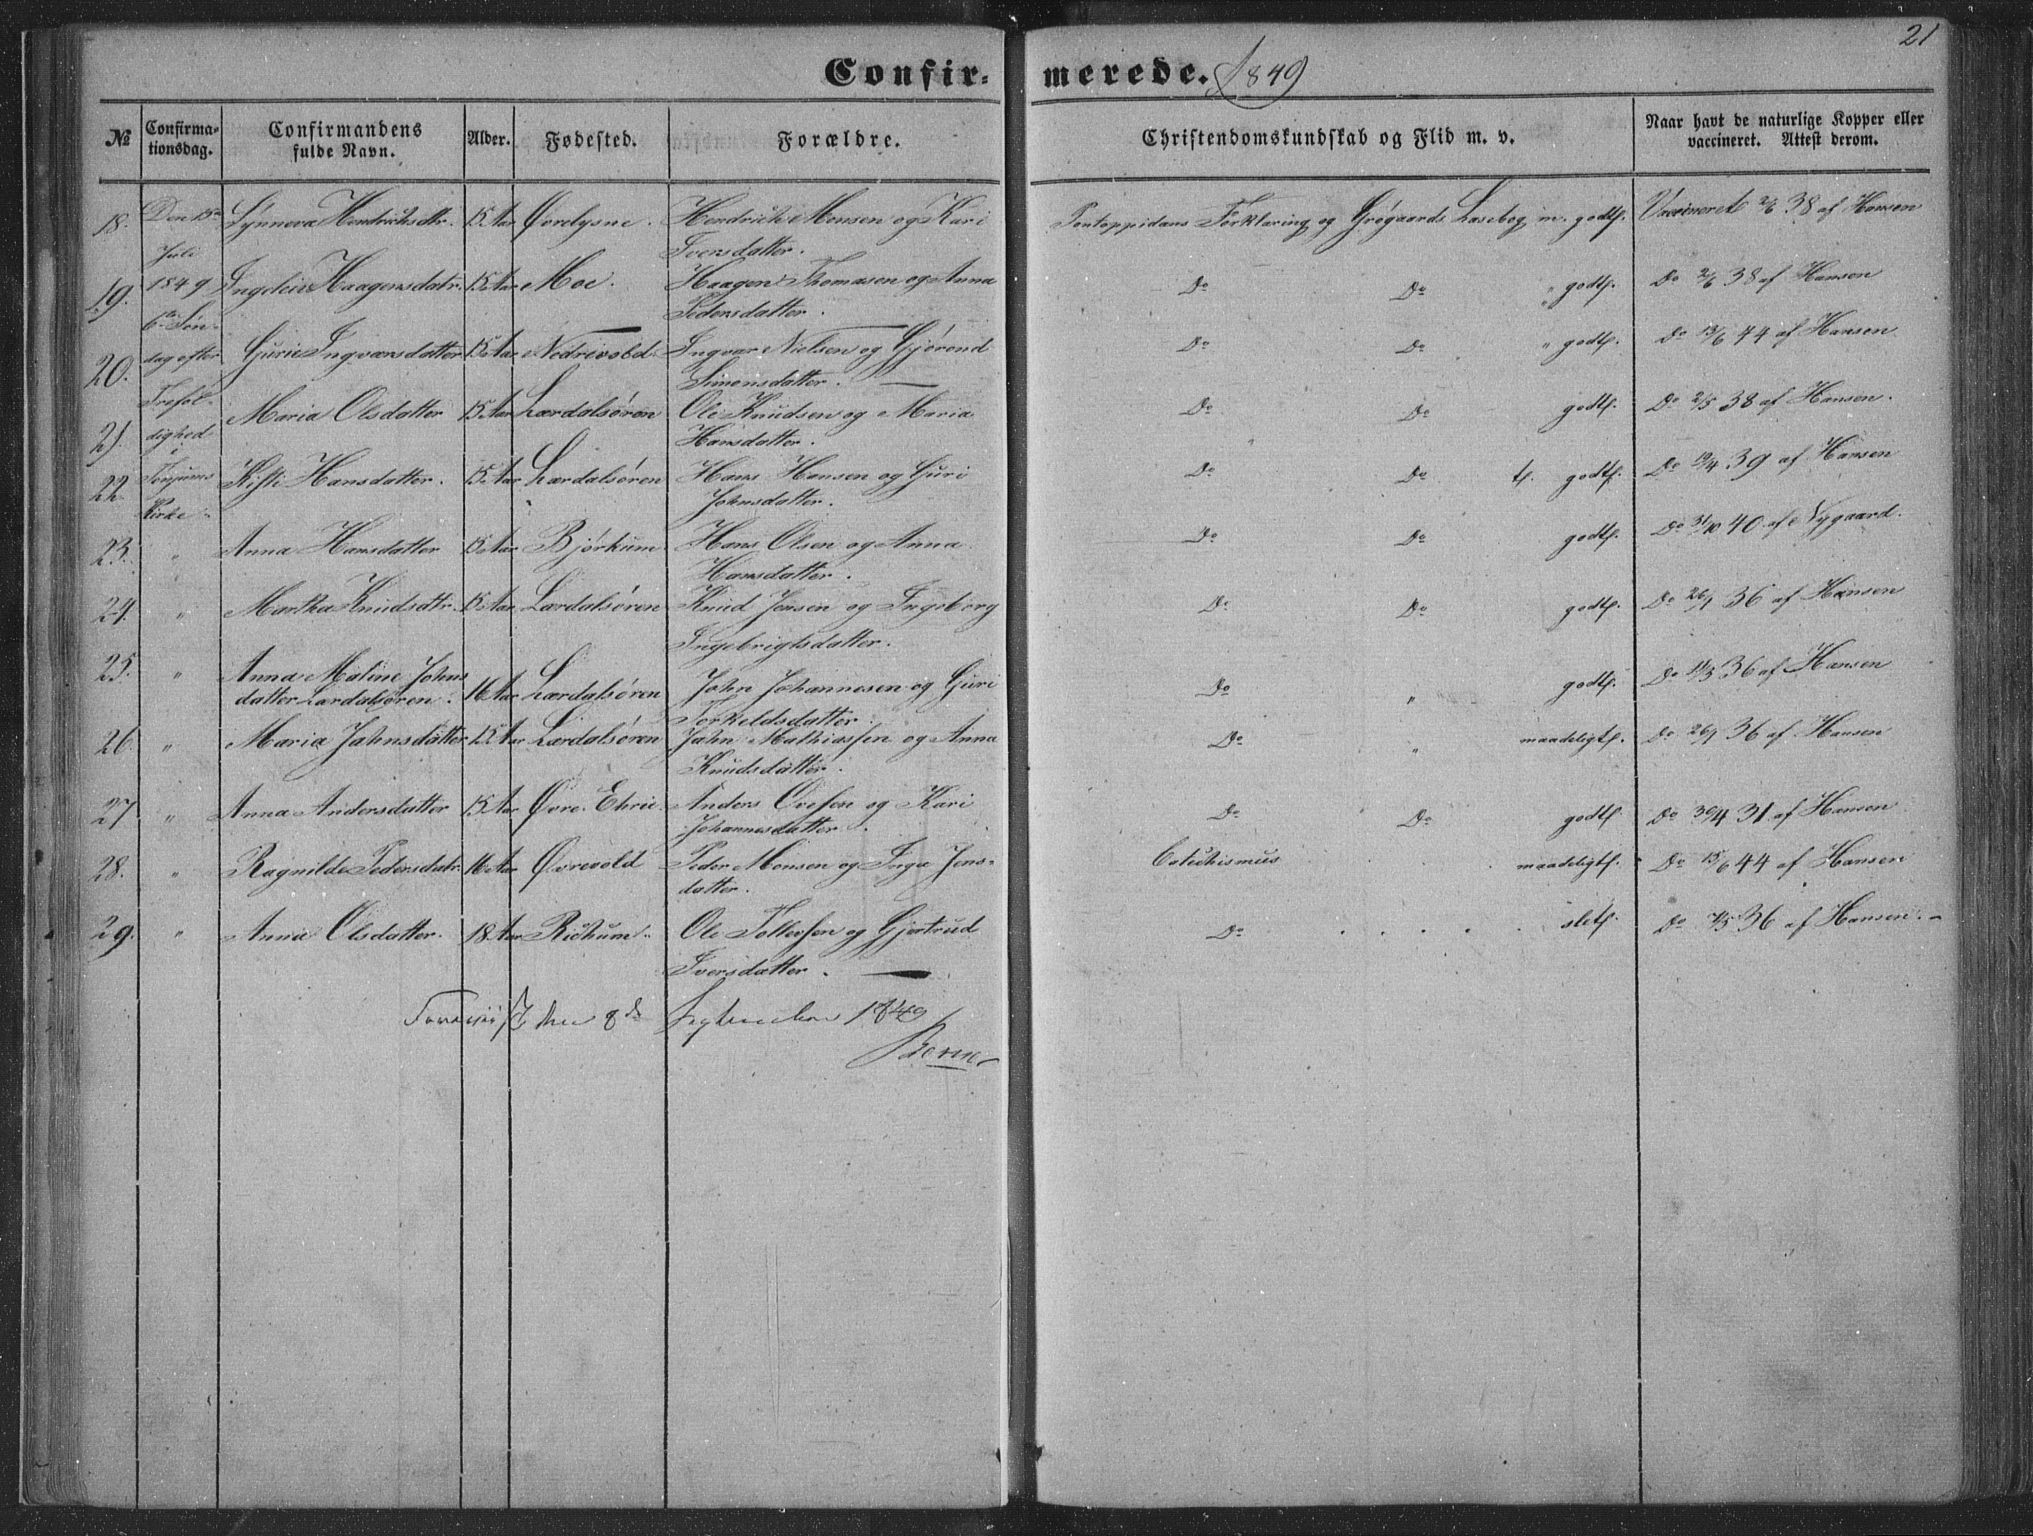 21
Confir- merede. 1849
No Confirma-tionsdag. Confirmandens fulde Navn. Alder. Fødested. Forældre. Christendomskundskab og Flid m. v. Naar havt de naturlige Kopper eller vaccineret. Attest derom.
18. Den 15de Synneva Hendrichsdtr. 15 Aar Øvrelysne. Hendrich Monsen og Kari Pontoppidans Forklaring og Grøgaards Læsebog m. godtf. Vaccineret 2/6 38 af Hansen
Juli Iversdatter.
19. 1849 Ingeleiv Haagensdatr. 15 Aar Moe. Haagen Thomasen og Anna Do Do " godtf. Do 2/6 38 af Hansen
6te Søn- Pedersdatter.
20. dag efter Gurie Ingvarsdatter 15 Aar Nedrevold Ingvar Nielsen og Gjørond Do Do " godtf. Do 13/6 44 af Hansen
Simonsdatter.
Trefol-
21. dighed Maria Olsdatter 15 Aar Lærdalsøren Ole Knudsen og Maria Do Do godtf. Do 2/5 38 af Hansen.
i Hansdatter.
22. Tonjums Kisti Hansdatter. 15 Aar Lærdalsøren Hans Hansen og Guri Do Do tf. godtf. Do 19/4 39 af Hansen
Kirke Johnsdatter.
23. " Anna Hansdatter 15 Aar Bjørkum Hans Olsen og Anna Do Do godtf. Do 31/10 40 af Nygaard.
Hansdatter.
24. " Martha Knudsdtr. 15 Aar Lærdalsøren Knud Jensen og Ingeborg Do Do godtf. Do 26/1 36 af Hansen
Ingebrigtsdatter.
25. " Anna Maline Johns
datter Lærdalsøren. 16 Aar Lærdalsøren John Johannesen og Guri Do " godtf. Do 11/3 36 af Hansen
Torkeldsdatter.
26. " Maria Jahnsdatter 15 Aar Lærdalsøren Jahn Mathiassen og Anna Do " maadeligtf. Do 26/1 36 af Hansen
Knudsdatter.
27 " Anna Andersdatter 15 Aar Øvre Ehrie Anders Ovesen og Kari Do Do godtf. Do 30/4 31 af Hansen
Johannesdatter.
28. " Ragnilde Pedersdatr. 16 Aar Øvrevold Peder Monsen og Inga Jens- Catechismus maadeligtf. Do 15/6 44 af Hansen
datter.
29. " Anna Olsdatter. 18 Aar Richum Ole Tollefsen og Gjertrud Do sletf. Do 7/5 36 af Hansen.
Iversdatter.
den 8de September 1849